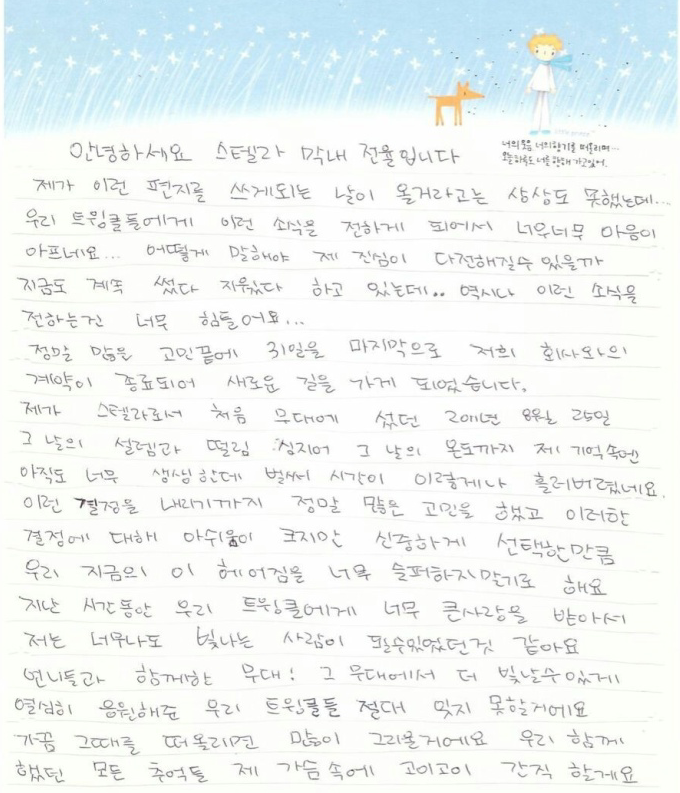 너의 웃음 너의 향기를 떠올리며...
오늘 하루도 너를 향해 가고 있어.
안녕하세요 스텔라 막내 전율입니다
제가 이런 편지를 쓰게되는 날이 올거라고는 상상도 못했는데...
우리 트윙클들에게 이런 소식을 전하게 되어서 너무너무 마음이
아프네요... 어떻게 말해야 제 진심이 다전해질수 있을까
지금도 계속 썼다 지웠다 하고 있는데.. 역시나 이런 소식을
전하는건 너무 힘들어요...
정말 많은 고민끝에 31일을 마지막으로 저희 회사와의
계약이 종료되어 새로운 길을 가게 되었습니다.
제가 스텔라로서 처음 무대에 섰던 2011년 8월 25일
그 날의 설렘과 떨림 심지어 그 날의 온도까지 제 기억속엔
아직도 너무 생생한데 벌써 시간이 이렇게나 흘러버렸네요.
이런 결정을 내리기까지 정말 많은 고민을 했고 이러한
결정에 대해 아쉬움이 크지만 신중하게 선택한만큼
우리 지금의 이 헤어짐을 너무 슬퍼하지말기로 해요
지난 시간동안 우리 트윙클에게 너무 큰사랑을 받아서
저는 너무나도 빛나는 사람이 될수있었던것 같아요
언니들과 함께한 무대! 그 무대에서 더 빛날수 있게
열심히 응원해준 우리 트윙클들 절대 잊지 못할거에요
가끔 그때를 떠올리면 많이 그리울거에요 우리 함께
했던 모든 추억들 제 가슴속에 고이고이 간직 할게요